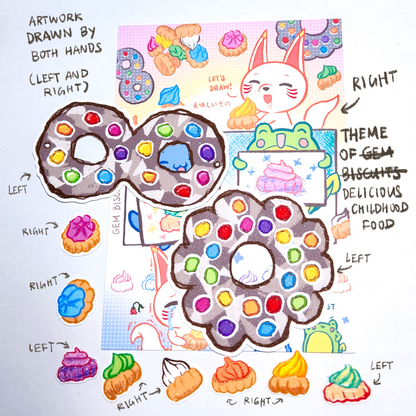 ARTWORK
DRAWN BY
BOTH HANDS
(LEFT AND
RIGHT)
LET'S
DRAW!
美味しいもの
RIGHT
THEME
OF GEM
BISCUITS
DELICIOUS
CHILDHOOD
FOOD
LEFT
GEM BISC
RIGHT
LEFT
RIGHT
LEFT
LEFT
RIGHT
RIGHT